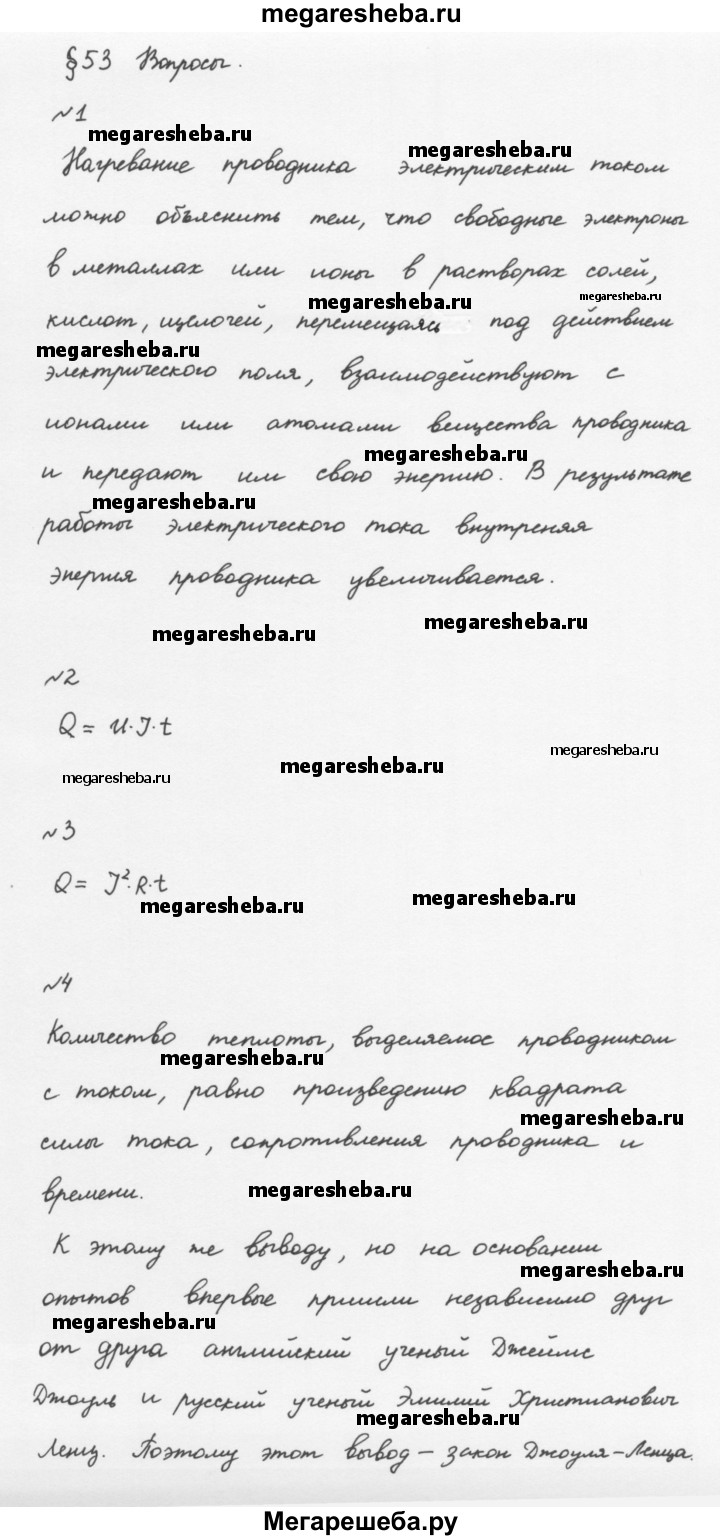 megaresheba.ru
§53 Вопросы.
№1
megaresheba.ru
megaresheba.ru
Нагревание проводника электрическим током
можно объяснить тем, что свободные электроны
в металлах или ионы в растворах солей,
megaresheba.ru
megaresheba.ru
кислот, щелочей, перемещаясь под действием
megaresheba.ru
электрического поля, взаимодействуют с
ионами или атомами вещества проводника
megaresheba.ru
и передают им свою энергию. В результате
megaresheba.ru
работы электрического тока внутреняя
энергия проводника увеличивается.
megaresheba.ru
megaresheba.ru
№2
Q = U·I·t
megaresheba.ru
megaresheba.ru
megaresheba.ru
№3
Q = I²·R·t
megaresheba.ru
megaresheba.ru
№4
Количество теплоты, выделяемое проводником
megaresheba.ru
с током, равно произведению квадрата
megaresheba.ru
силы тока, сопротивления проводника и
времени.
megaresheba.ru
К этому же выводу, но на основании
megaresheba.ru
опытов впервые пришли независимо друг
megaresheba.ru
от друга английский ученый Джеймс
Джоуль и русский ученый Эмилий Христианович
megaresheba.ru
Ленц. Поэтому этот вывод – закон Джоуля-Ленца.
Мегарешеба.ру